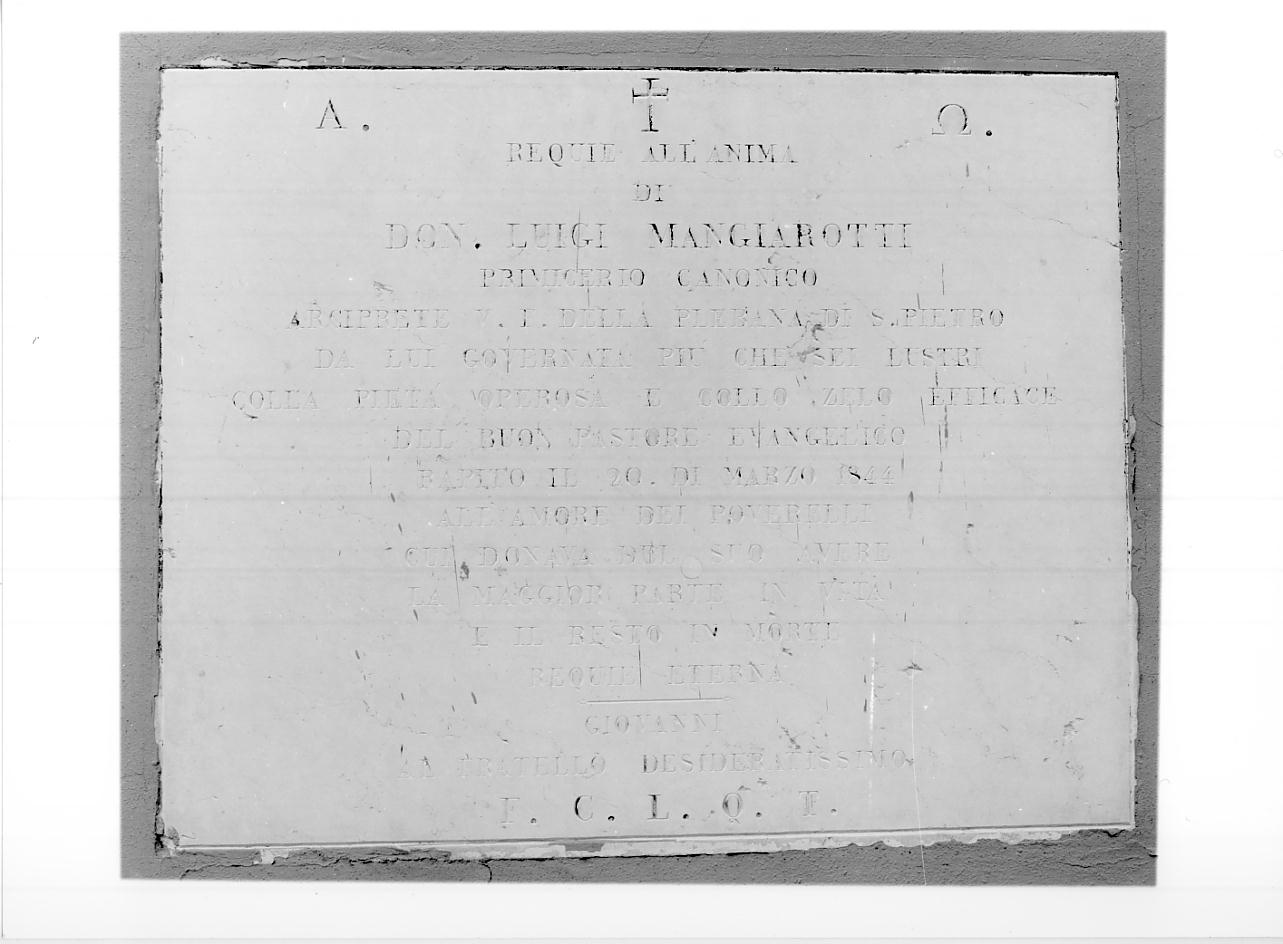 Α. ✝ Ω.
REQUIE ALL'ANIMA
DI
DON. LUIGI MANGIAROTTI
PRIMICERIO CANONICO
ARCIPRETE V. F. DELLA PLEBANA DI S. PIETRO
DA LUI GOVERNATA PIÚ CHE SEI LUSTRI
COLLA PIETÁ OPEROSA E COLLO ZELO EFFICACE
DEL BUON PASTORE EVANGELICO
RAPITO IL 20. DI MARZO 1844
ALL'AMORE DEI POVERELLI
CUI DONAVA DEL SUO AVERE
LA MAGGIOR PARTE IN VITA
E IL RESTO IN MORTE
REQUIE ETERNA
GIOVANNI
AL FRATELLO DESIDERATISSIMO
F. C. L. Q. T.